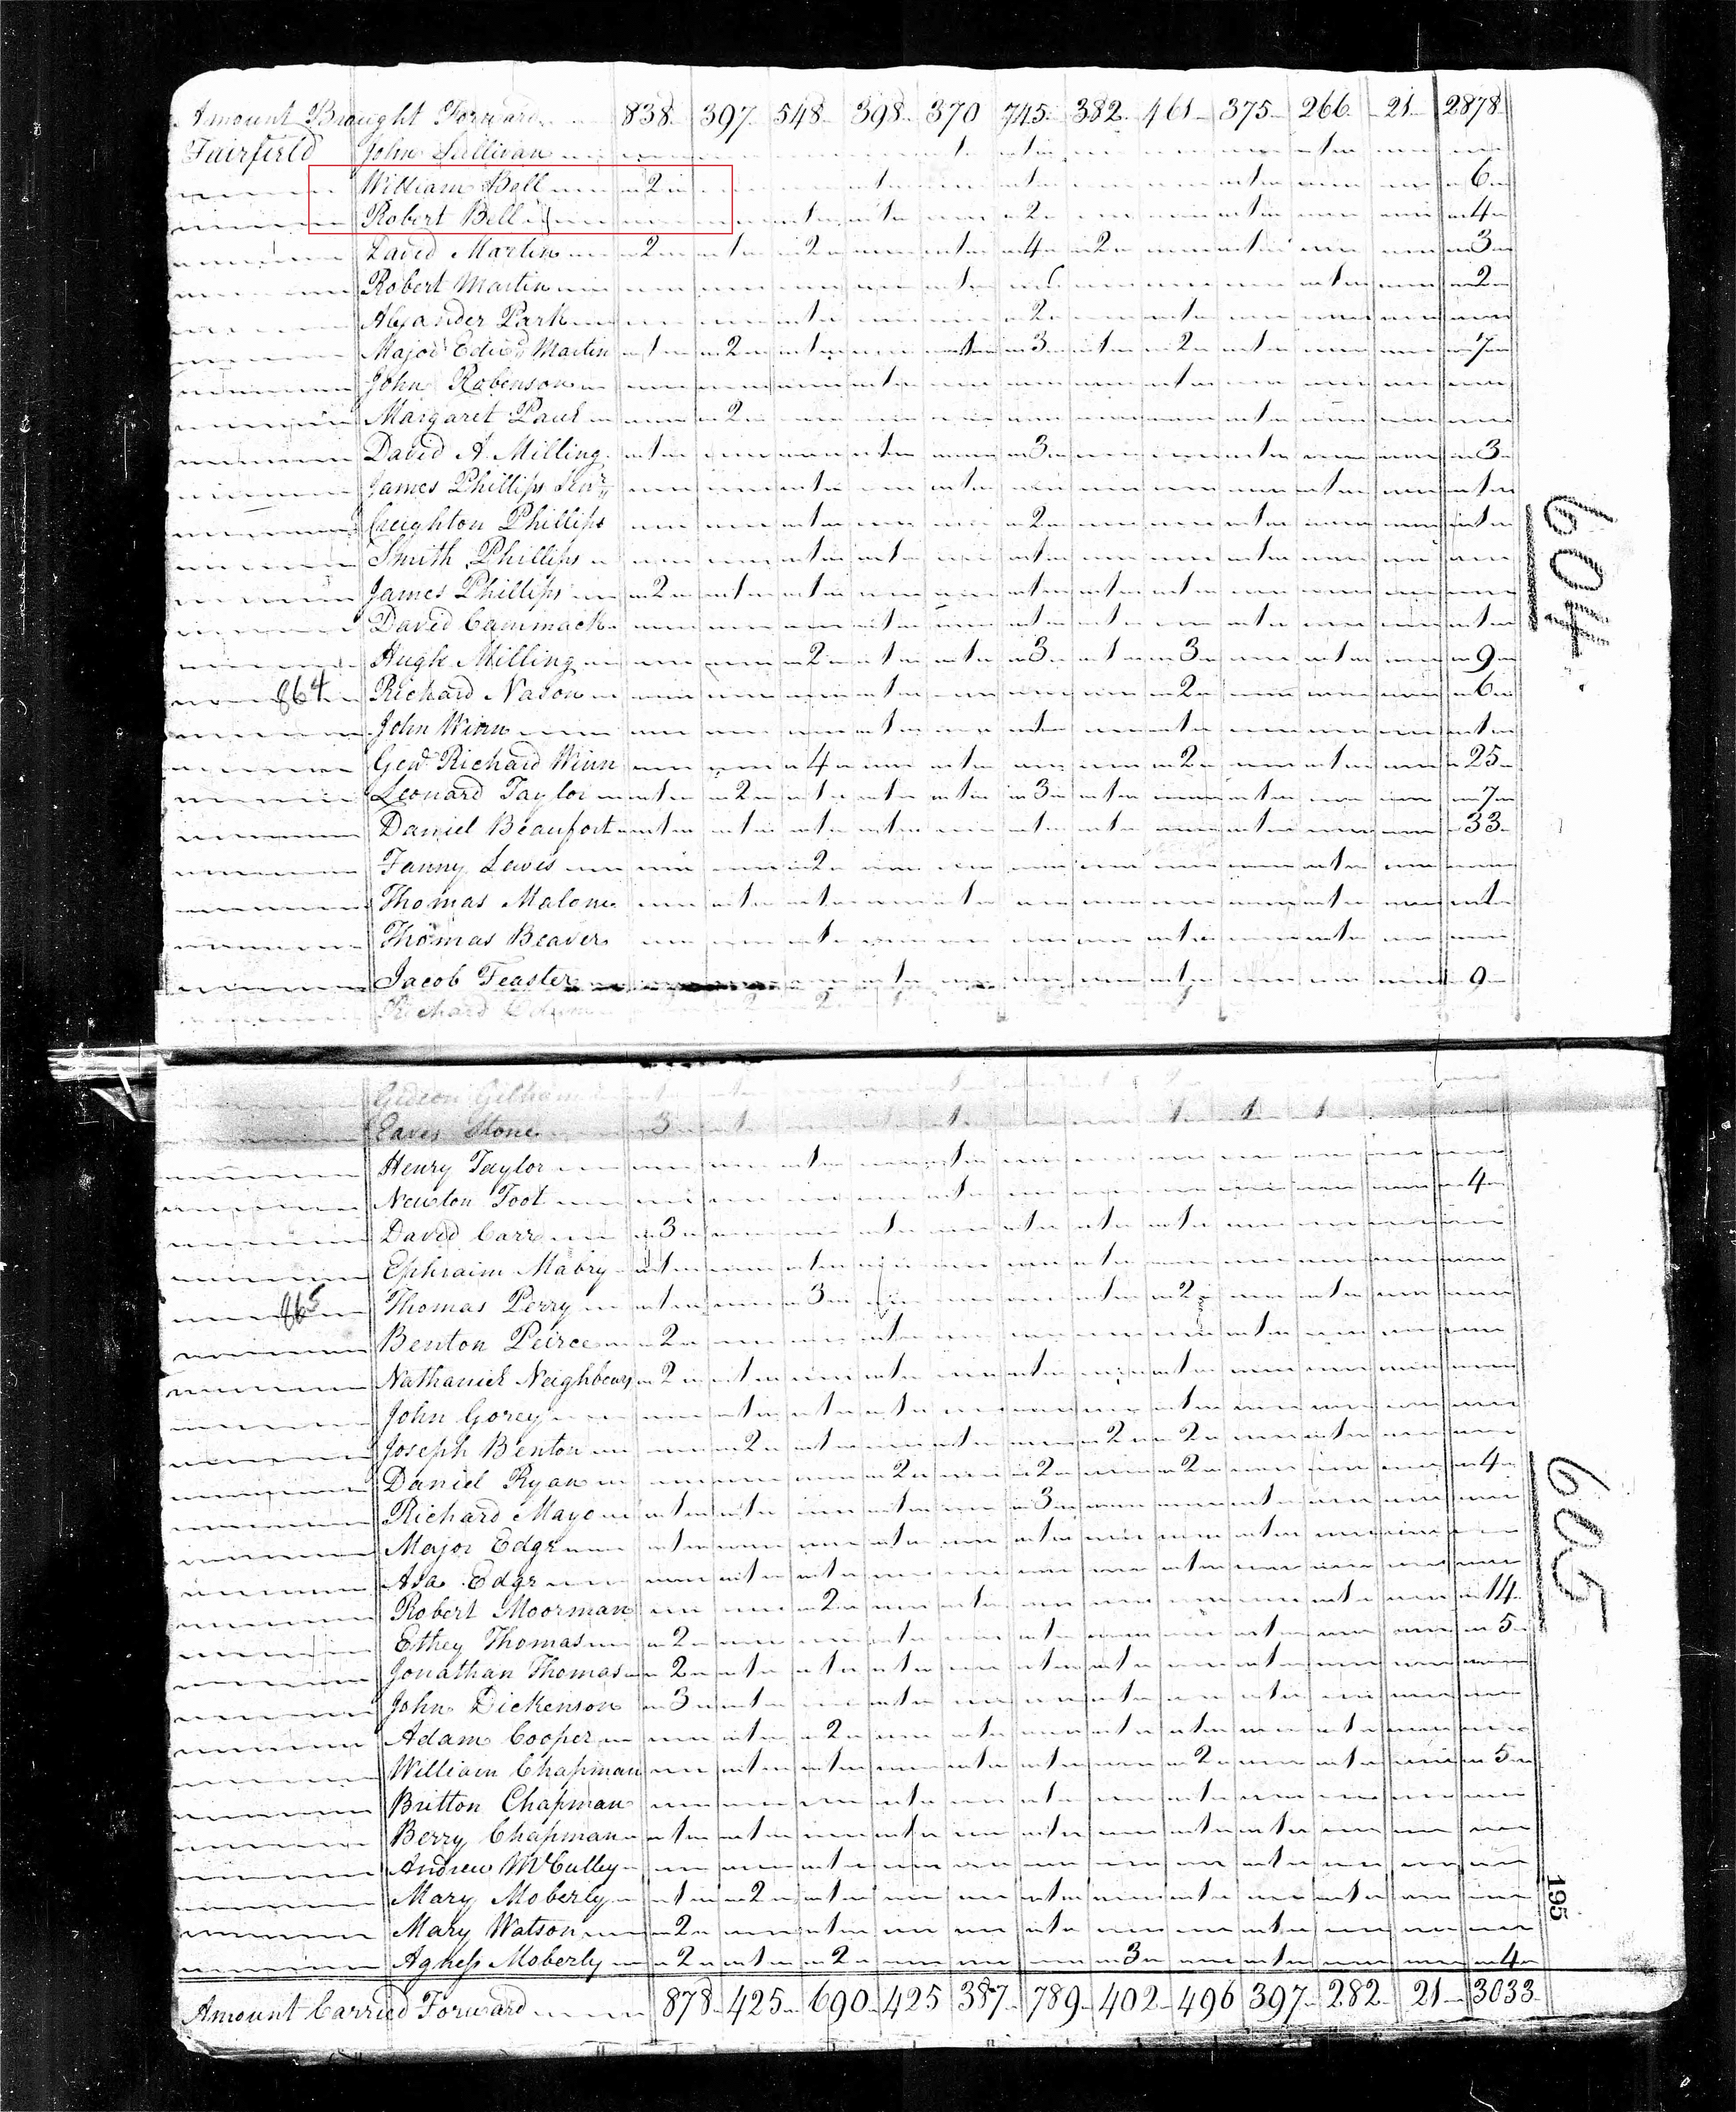 Amount Brought Forward 838 397 548 398 370 745 382 461 375 266 21 2878
Fairfield John Sullivan 1 1 1
William Bell 2 1 1 1 6
Robert Bell 1 1 2 1 4
David Martin 2 1 2 1 4 2 1 3
Robert Martin 1 1 2
Alexander Park 1 2 1
Major Edwd Martin 1 2 1 1 3 1 2 1 7
John Robenson 1 1
Margaret Paul 2 1
David A. Milling 1 1 3 1 3
James Phillips Senr 1 1 1 1
Creighton Phillips 1 2 1 1
Smith Phillips 1 1 1 1
James Phillips 2 1 1 1 1 1
David Cammack 1 1 1 1 1
Hugh Milling 2 1 1 3 1 3 1 9
864 Richard Nason 1 2 6
John Winn 1 1 1 1
Genl Richard Winn 4 1 2 1 25
Leonard Taylor 1 2 1 1 1 3 1 1 7
Daniel Beaufort 1 1 1 1 1 1 1 33
Fanny Lewis 2 1
Thomas Malone 1 1 1 1 1
Thomas Beaver 1 1 1
Jacob Feaster 1 1 9
Richard
604
Gideon Gilham
Eaves Stone 3 1 1 1 1 1
Henry Taylor 1 1
Newton Foot 1 4
David Carr 3 1 1 1 1
Ephraim Mabry 1 1 1
865 Thomas Perry 1 3 1 2 1
Benton Peirce 2 1 1
Nathaniel Neighbours 2 1 1 1 1
John Gorey 1 1 1 1
Joseph Benton 2 1 1 2 2 1
Daniel Ryan 2 2 2 4
Richard Mayo 1 1 1 3 1
Major Edge 1 1 1 1
Asa Edge 1 1 1
Robert Moorman 2 1 1 14
Ethey Thomas 2 1 1 1 5
Jonathan Thomas 2 1 1 1 1 1 1
John Dickenson 3 1 1 1 1
Adam Cooper 1 2 1 1 1 1
William Chapman 1 1 1 1 2 1 5
Britton Chapman 1 1 1
Berry Chapman 1 1 1 1 1 1
Andrew McCulley 1 1
Mary Moberly 1 2 1 1 1 1
Mary Watson 2 1 1 1
Agness Moberly 2 1 2 3 1 4
Amount Carried Forward 878 425 690 425 387 789 402 496 397 282 21 3033
605
195